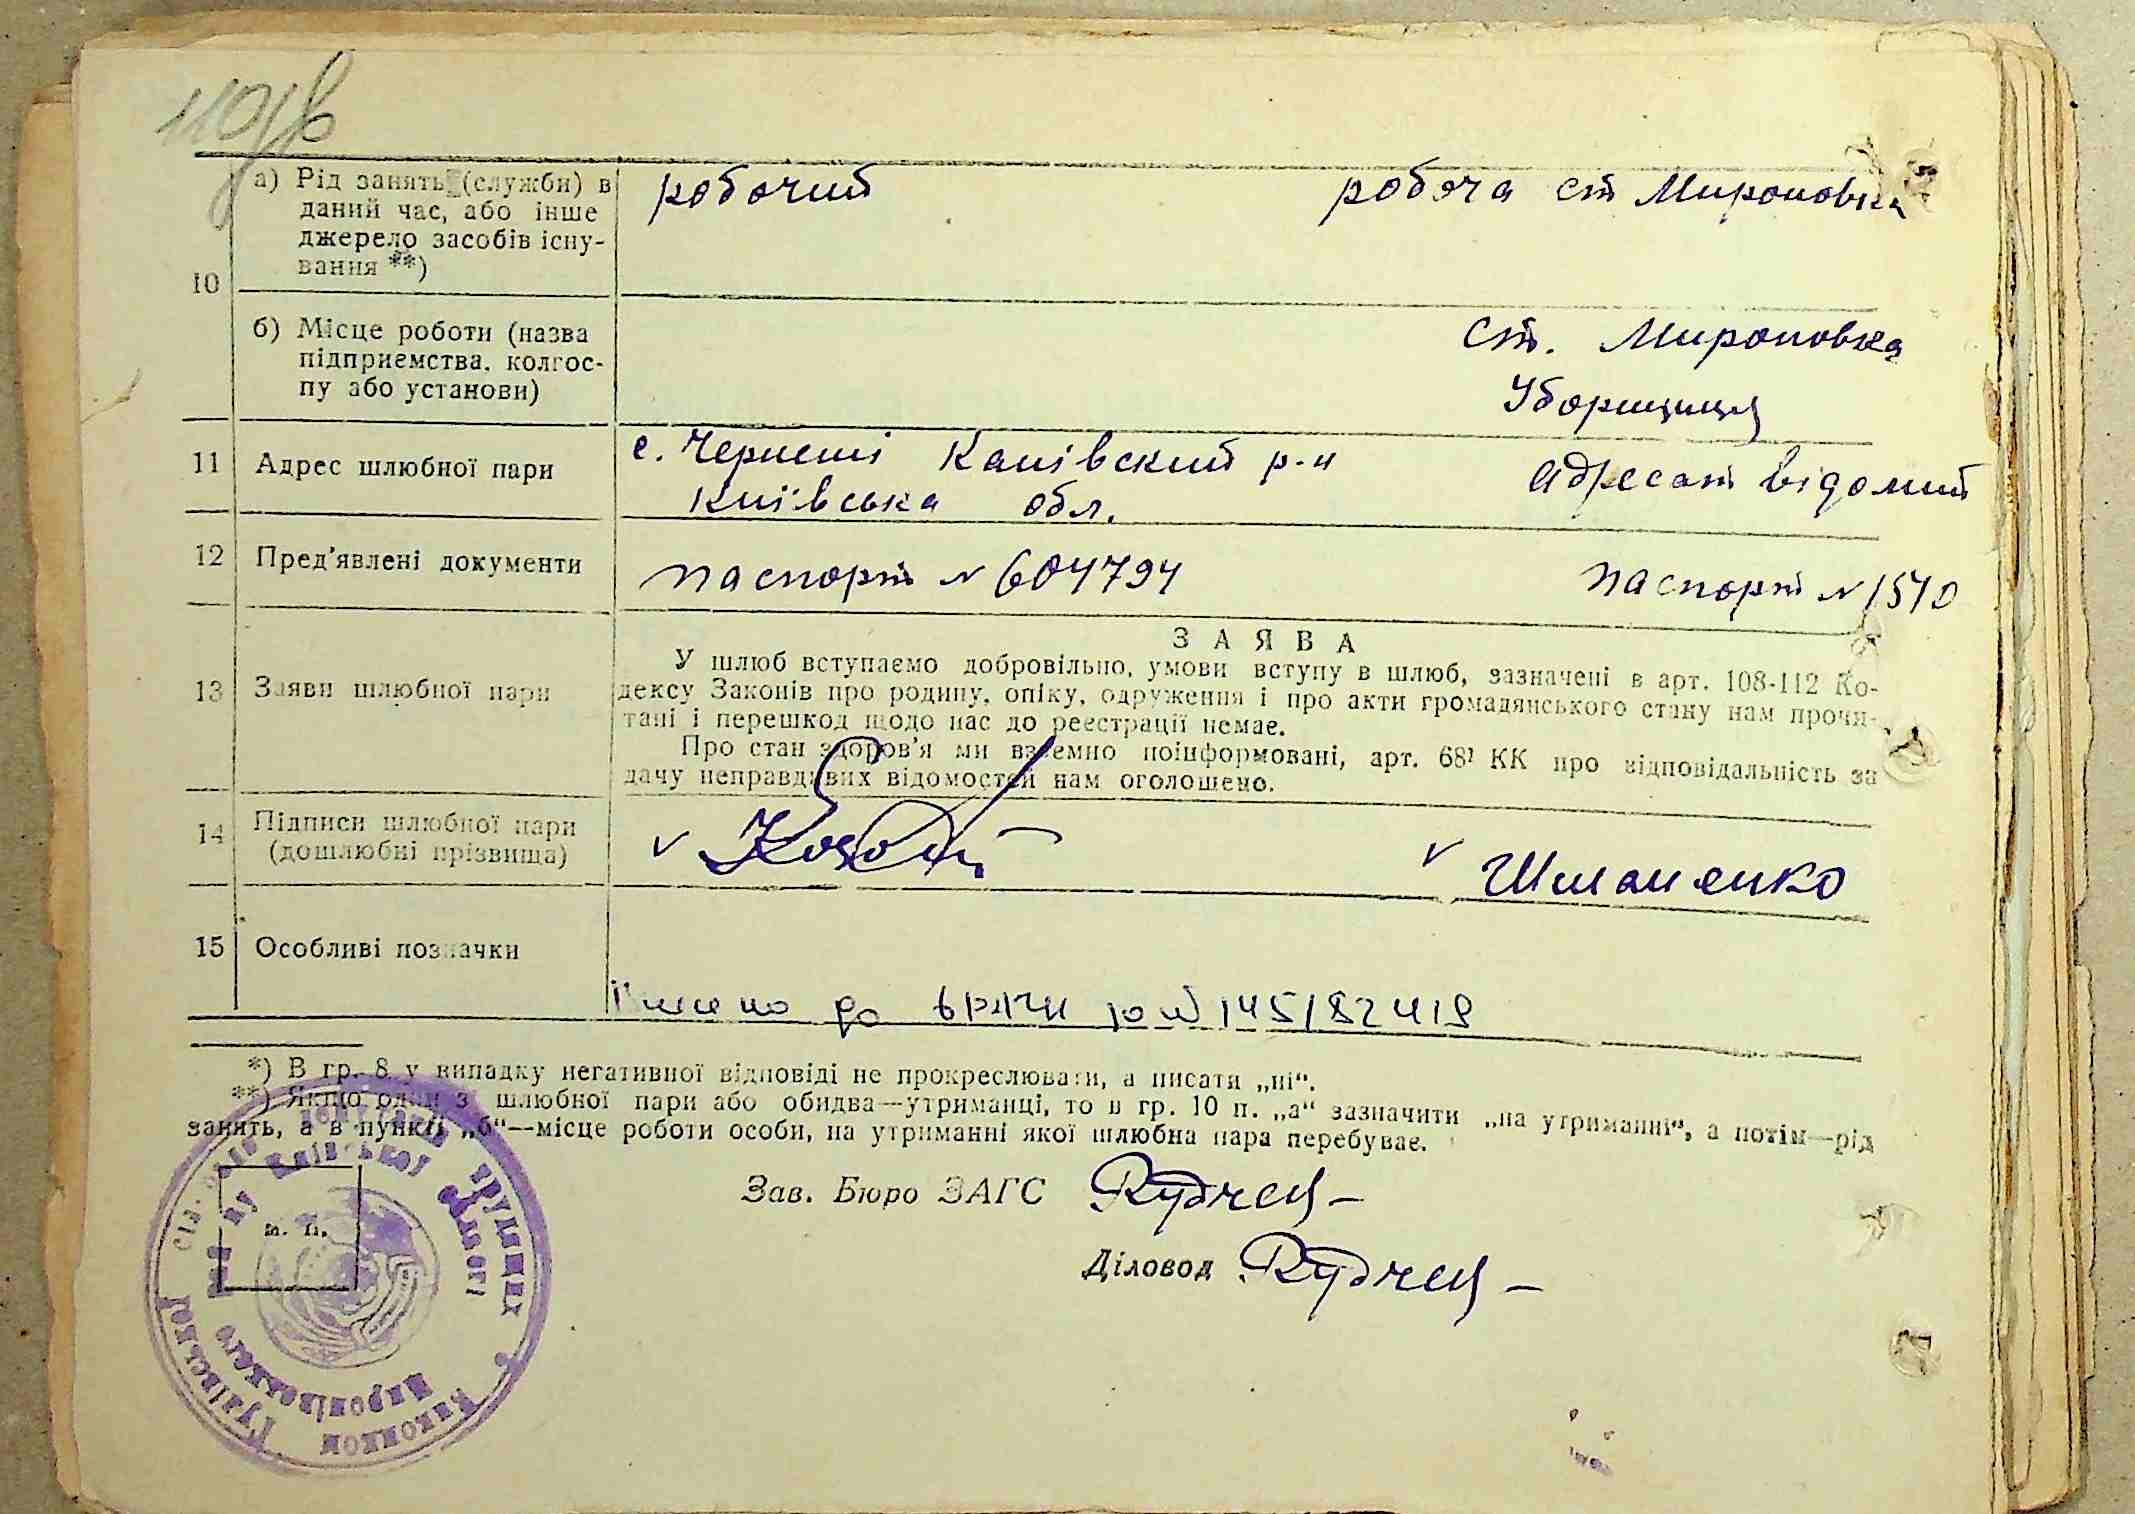 а) Рід занять (служби) в
даний час, або інше
джерело засобів існу-
вання **)
робочий
робоча ст Мироновка
10
б) Місце роботи (назва
підприємства, колгос-
пу або установи)
ст. Мироновка
Уборщиця
11 Адрес шлюбної пари
с. Черниші Канівский р-н
Київська обл.
Адресат відомий
12 Пред'явлені документи
паспорт № 604794
паспорт № 1540
13 Заяви шлюбної пари
ЗАЯВА
У шлюб вступаємо добровільно, умови вступу в шлюб, зазначені в арт. 108-112 Ко-
дексу Законів про родину, опіку, одруження і про акти громадянського стану нам прочи-
тані і перешкод щодо нас до реєстрації немає.
Про стан здоров'я ми взаємно поінформовані, арт. 68¹ КК про відповідальність за
дачу неправдивих відомостей нам оголошено.
14 Підписи шлюбної пари
(дошлюбні прізвища)
Шиманенко
15 Особливі позначки
до
*) В гр. 8 у випадку негативної відповіді не прокреслювати, а писати „ні“.
**) Якщо один з шлюбної пари або обидва—утриманці, то в гр. 10 п. „а“ зазначити „на утриманні“, а потім—рід
занять, а в пункті „б“—місце роботи особи, на утриманні якої шлюбна пара перебуває.
Зав. Бюро ЗАГС
Діловод
м. п.
Виконком сільської ради депутатів трудящих
Миронівського р-ну Київської області